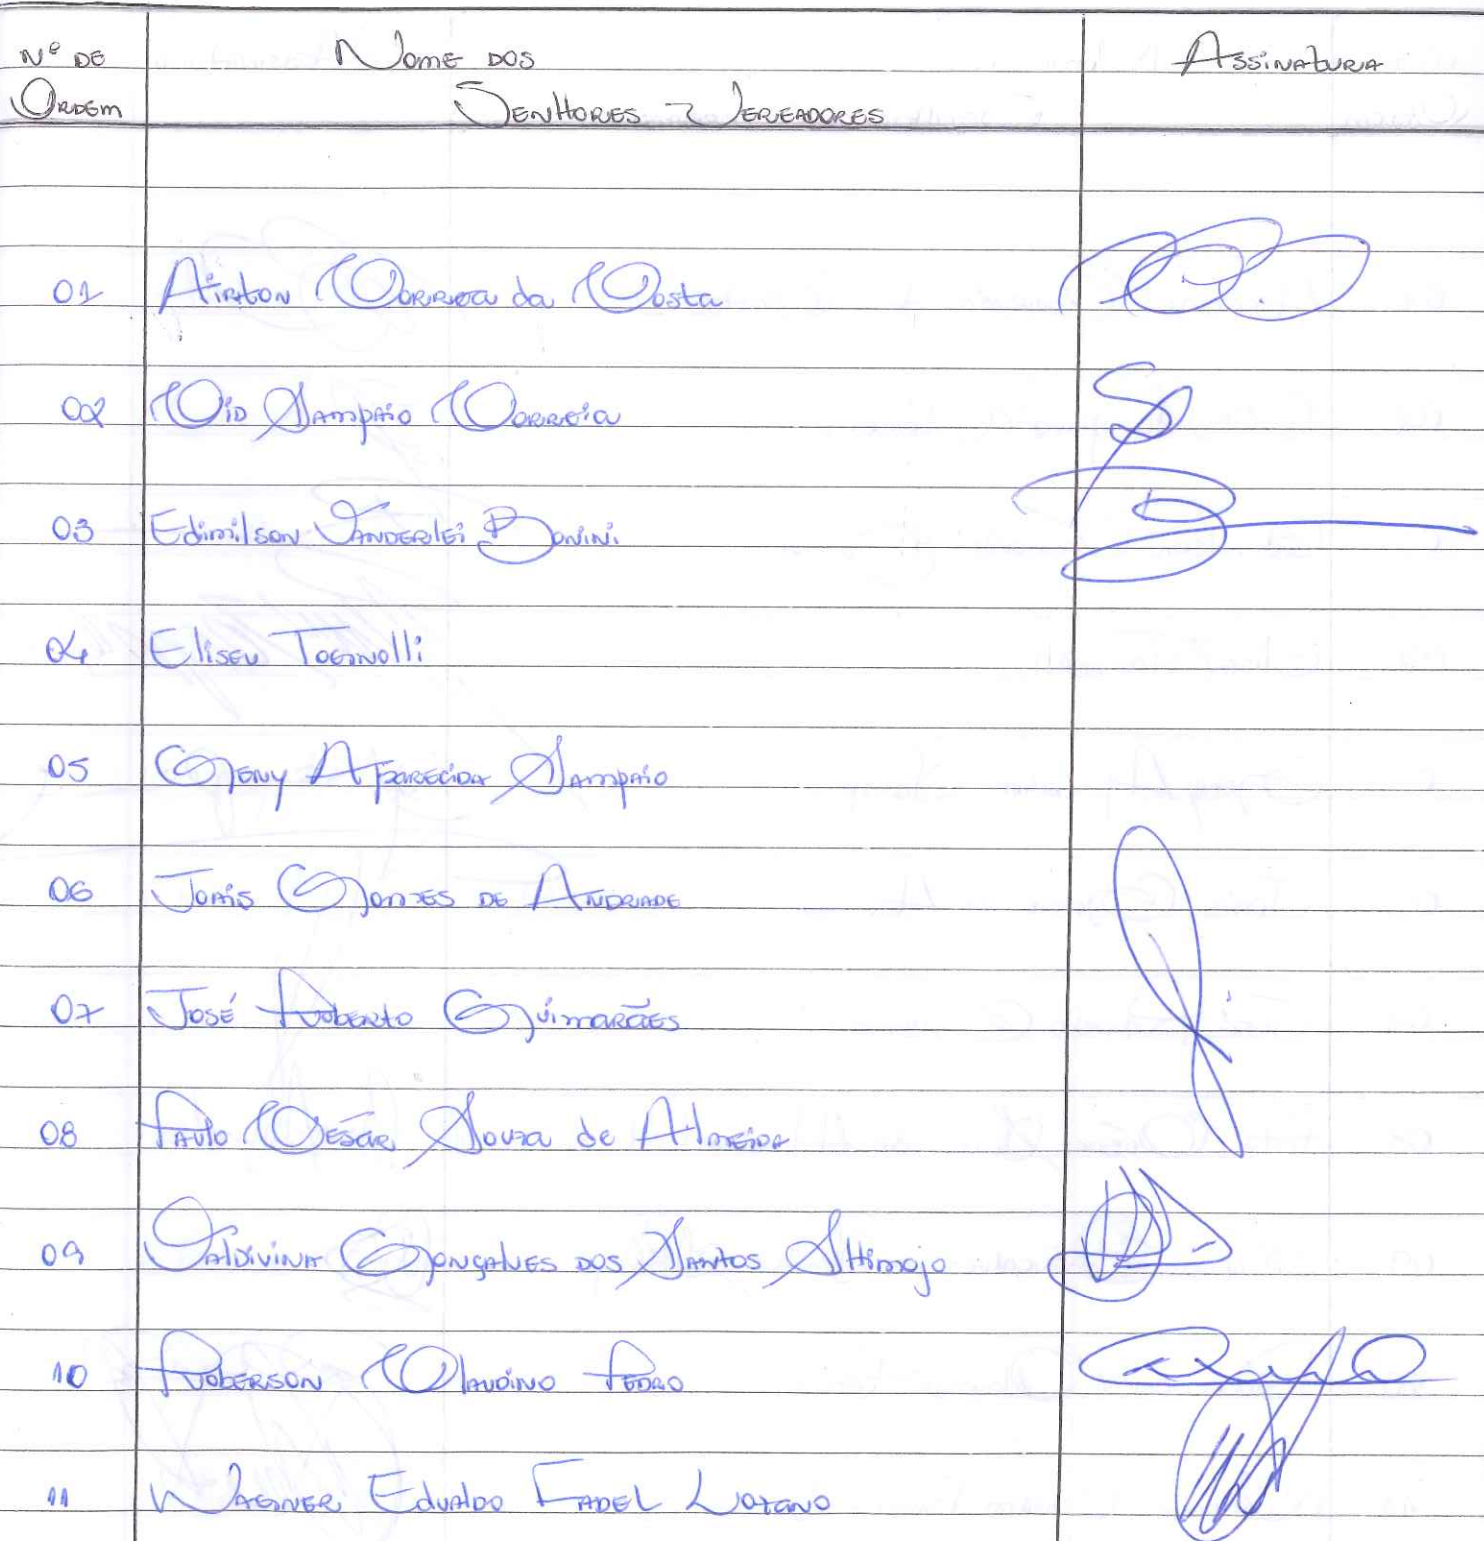 Nº DE Nome DOS Assinatura
Ordem Senhores Vereadores
01 Airton Correa da Costa
02 Cid Sampaio Correia
03 Edimilson Vanderlei Bonini
04 Eliseu
05 Geny Aparecida Sampaio
06 Jonis Gomes de Andrade
07 José Roberto Guimarães
08 Paulo César Souza de Almeida
09 Valdivina Gonçalves dos Santos Shimojo
10 Roberson Claudino Pedro
11 Wagner Edualdo Fadel Lozano